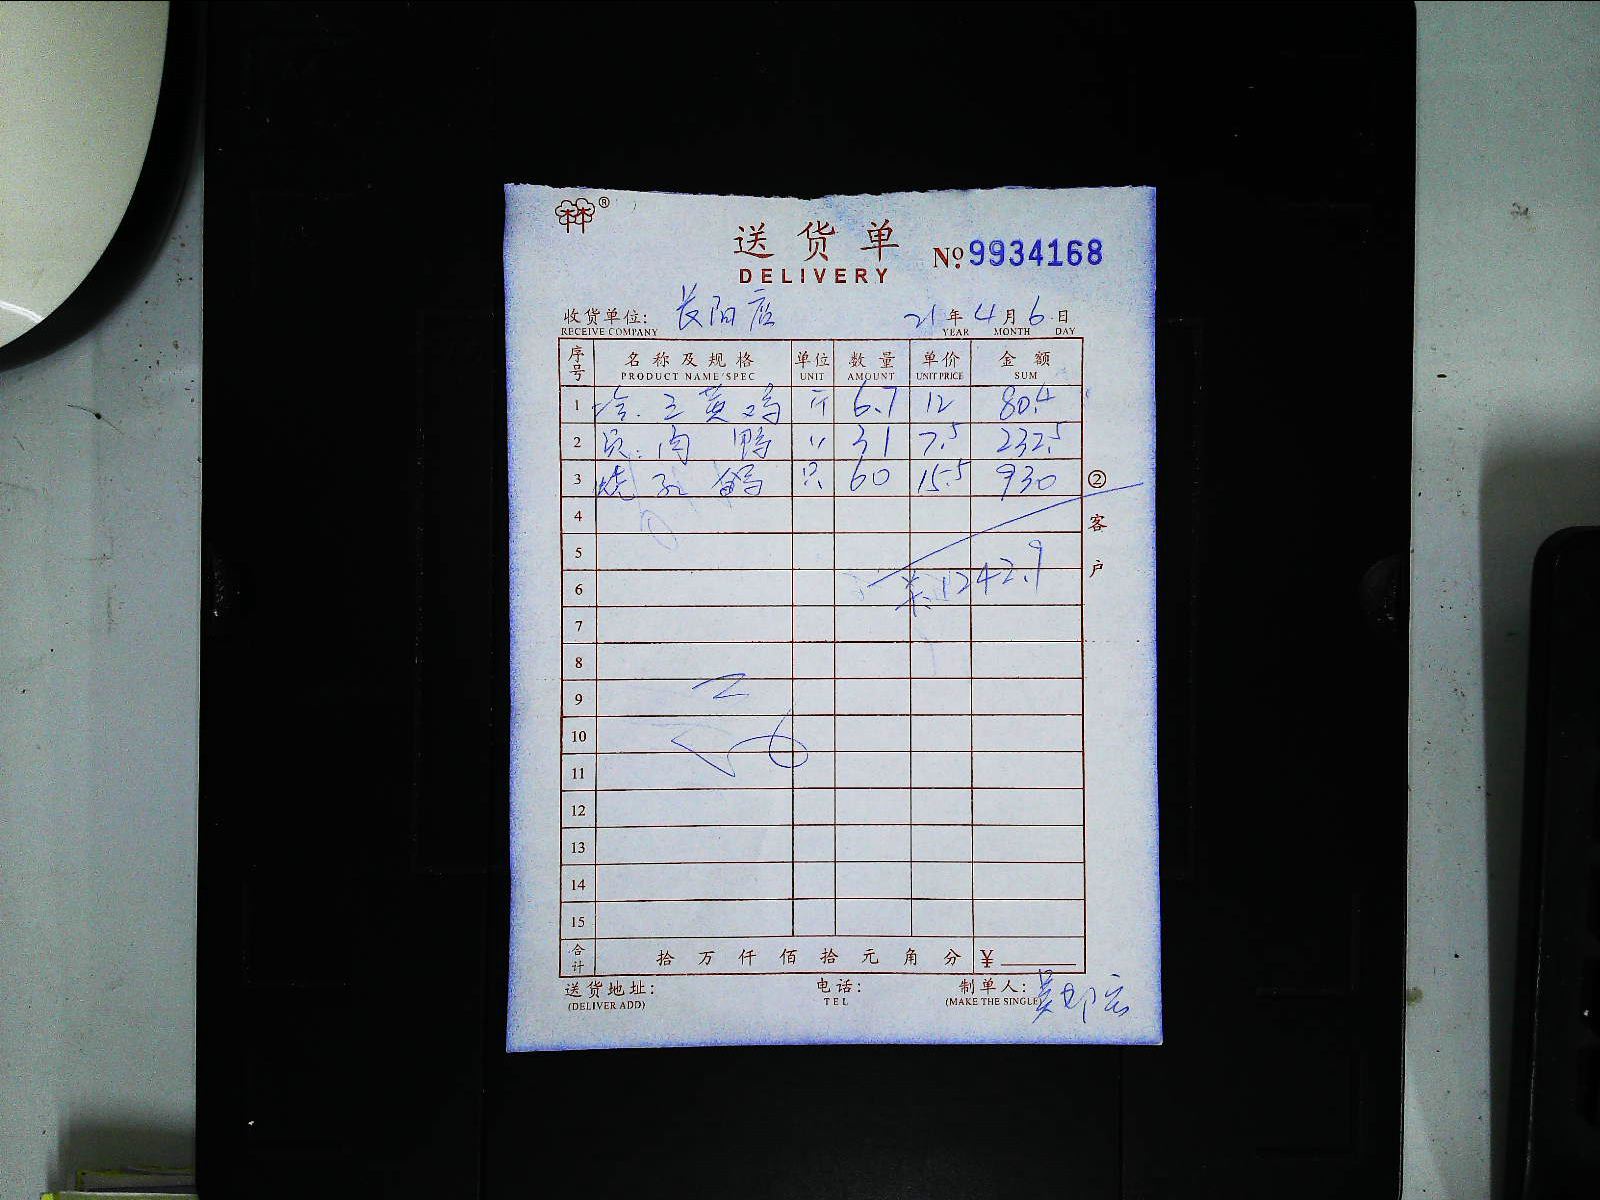 林®
送货单
DELIVERY
№ 9934168
收货单位: 长阳店 21年4月6日
RECEIVE COMPANY YEAR MONTH DAY
序号 名称及规格 单位 数量 单价 金额
PRODUCT NAME/SPEC UNIT AMOUNT UNIT PRICE SUM
1 冷.三黄鸡 斤 6.7 12 80.4
2 肉鸭 〃 31 7.5 232.5
3 烧乳鸽 只 60 15.5 930
② 客户
4
5
6 ¥:1242.9
7
8
9
10
11
12
13
14
15
合计 拾 万 仟 佰 拾 元 角 分 ¥
送货地址: 电话: 制单人:
(DELIVER ADD) TEL (MAKE THE SINGLE)